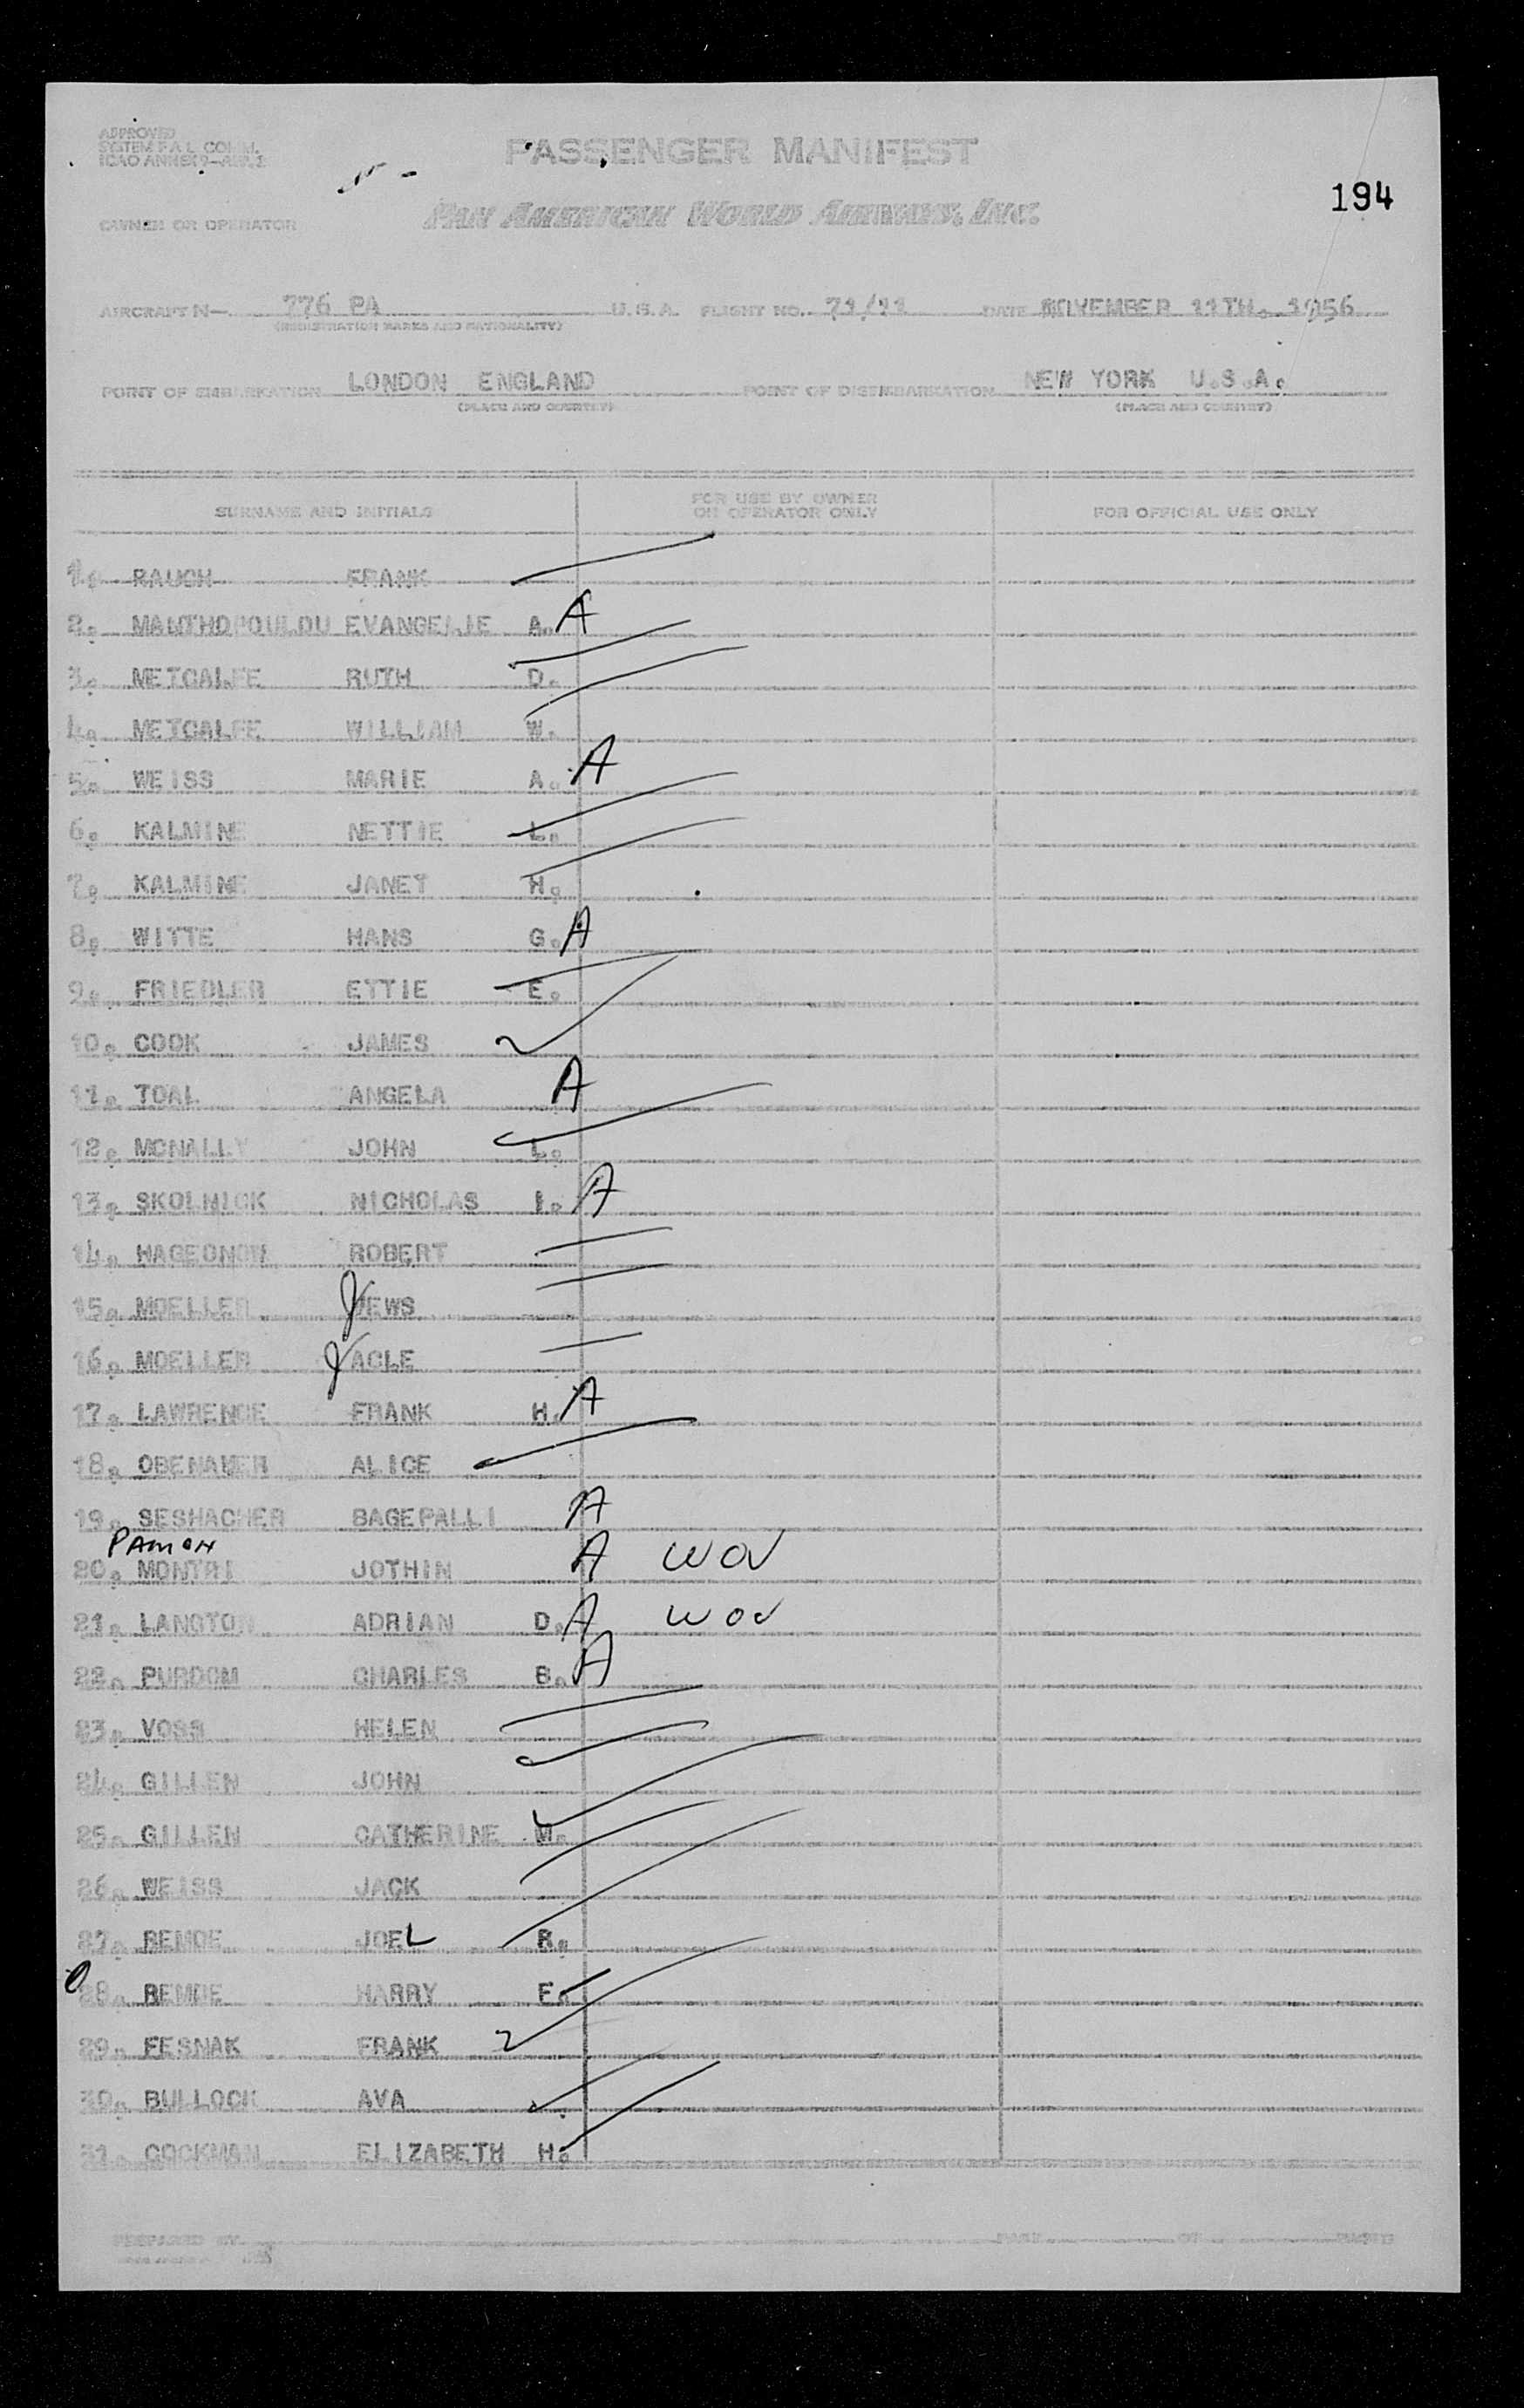 APPROVED
SYSTEM F.A.L. COMM.
ICAO ANNEX 9—APP. 2
PASSENGER MANIFEST
194
OWNER OR OPERATOR PAN AMERICAN WORLD AIRWAYS, INC.
AIRCRAFT N—. 776 PA U.S.A. FLIGHT NO. 71/11 DATE NOVEMBER 11TH. 1956
(REGISTRATION MARKS AND NATIONALITY)
POINT OF EMBARKATION LONDON ENGLAND POINT OF DISEMBARKATION NEW YORK U.S.A.
(PLACE AND COUNTRY) (PLACE AND COUNTRY)
SURNAME AND INITIALS FOR USE BY OWNER OR OPERATOR ONLY FOR OFFICIAL USE ONLY
1. RAUCH FRANK
2. MANTHOPOULOU EVANGELIE A. A
3. METCALFE RUTH D.
4. METCALFE WILLIAM W.
5. WEISS MARIE A. A
6. KALMINE NETTIE L.
7. KALMINE JANET H.
8. WITTE HANS G. A
9. FRIEDLER ETTIE E.
10. COOK JAMES
11. TOAL ANGELA A
12. MCNALLY JOHN L.
13. SKOLNICK NICHOLAS I. A
14. HAGEONOW ROBERT
15. MOELLER JEWS
16. MOELLER JACLE
17. LAWRENCE FRANK H. A
18. OBENAUER ALICE
19. SESHACHER BAGEPALLI A
PAMON
20. MONTRI JOTHIN A WOV
21. LANGTON ADRIAN D. A WOV
22. PURDOM CHARLES B. A
23. VOSS HELEN
24. GILLEN JOHN
25. GILLEN CATHERINE M.
26. WEISS JACK
27. BEMOE JOEL R.
28. BEMOE HARRY E.
29. FESNAK FRANK
30. BULLOCK AVA
31. COCKMAN ELIZABETH H.
PREPARED BY PAGE OF PAGES